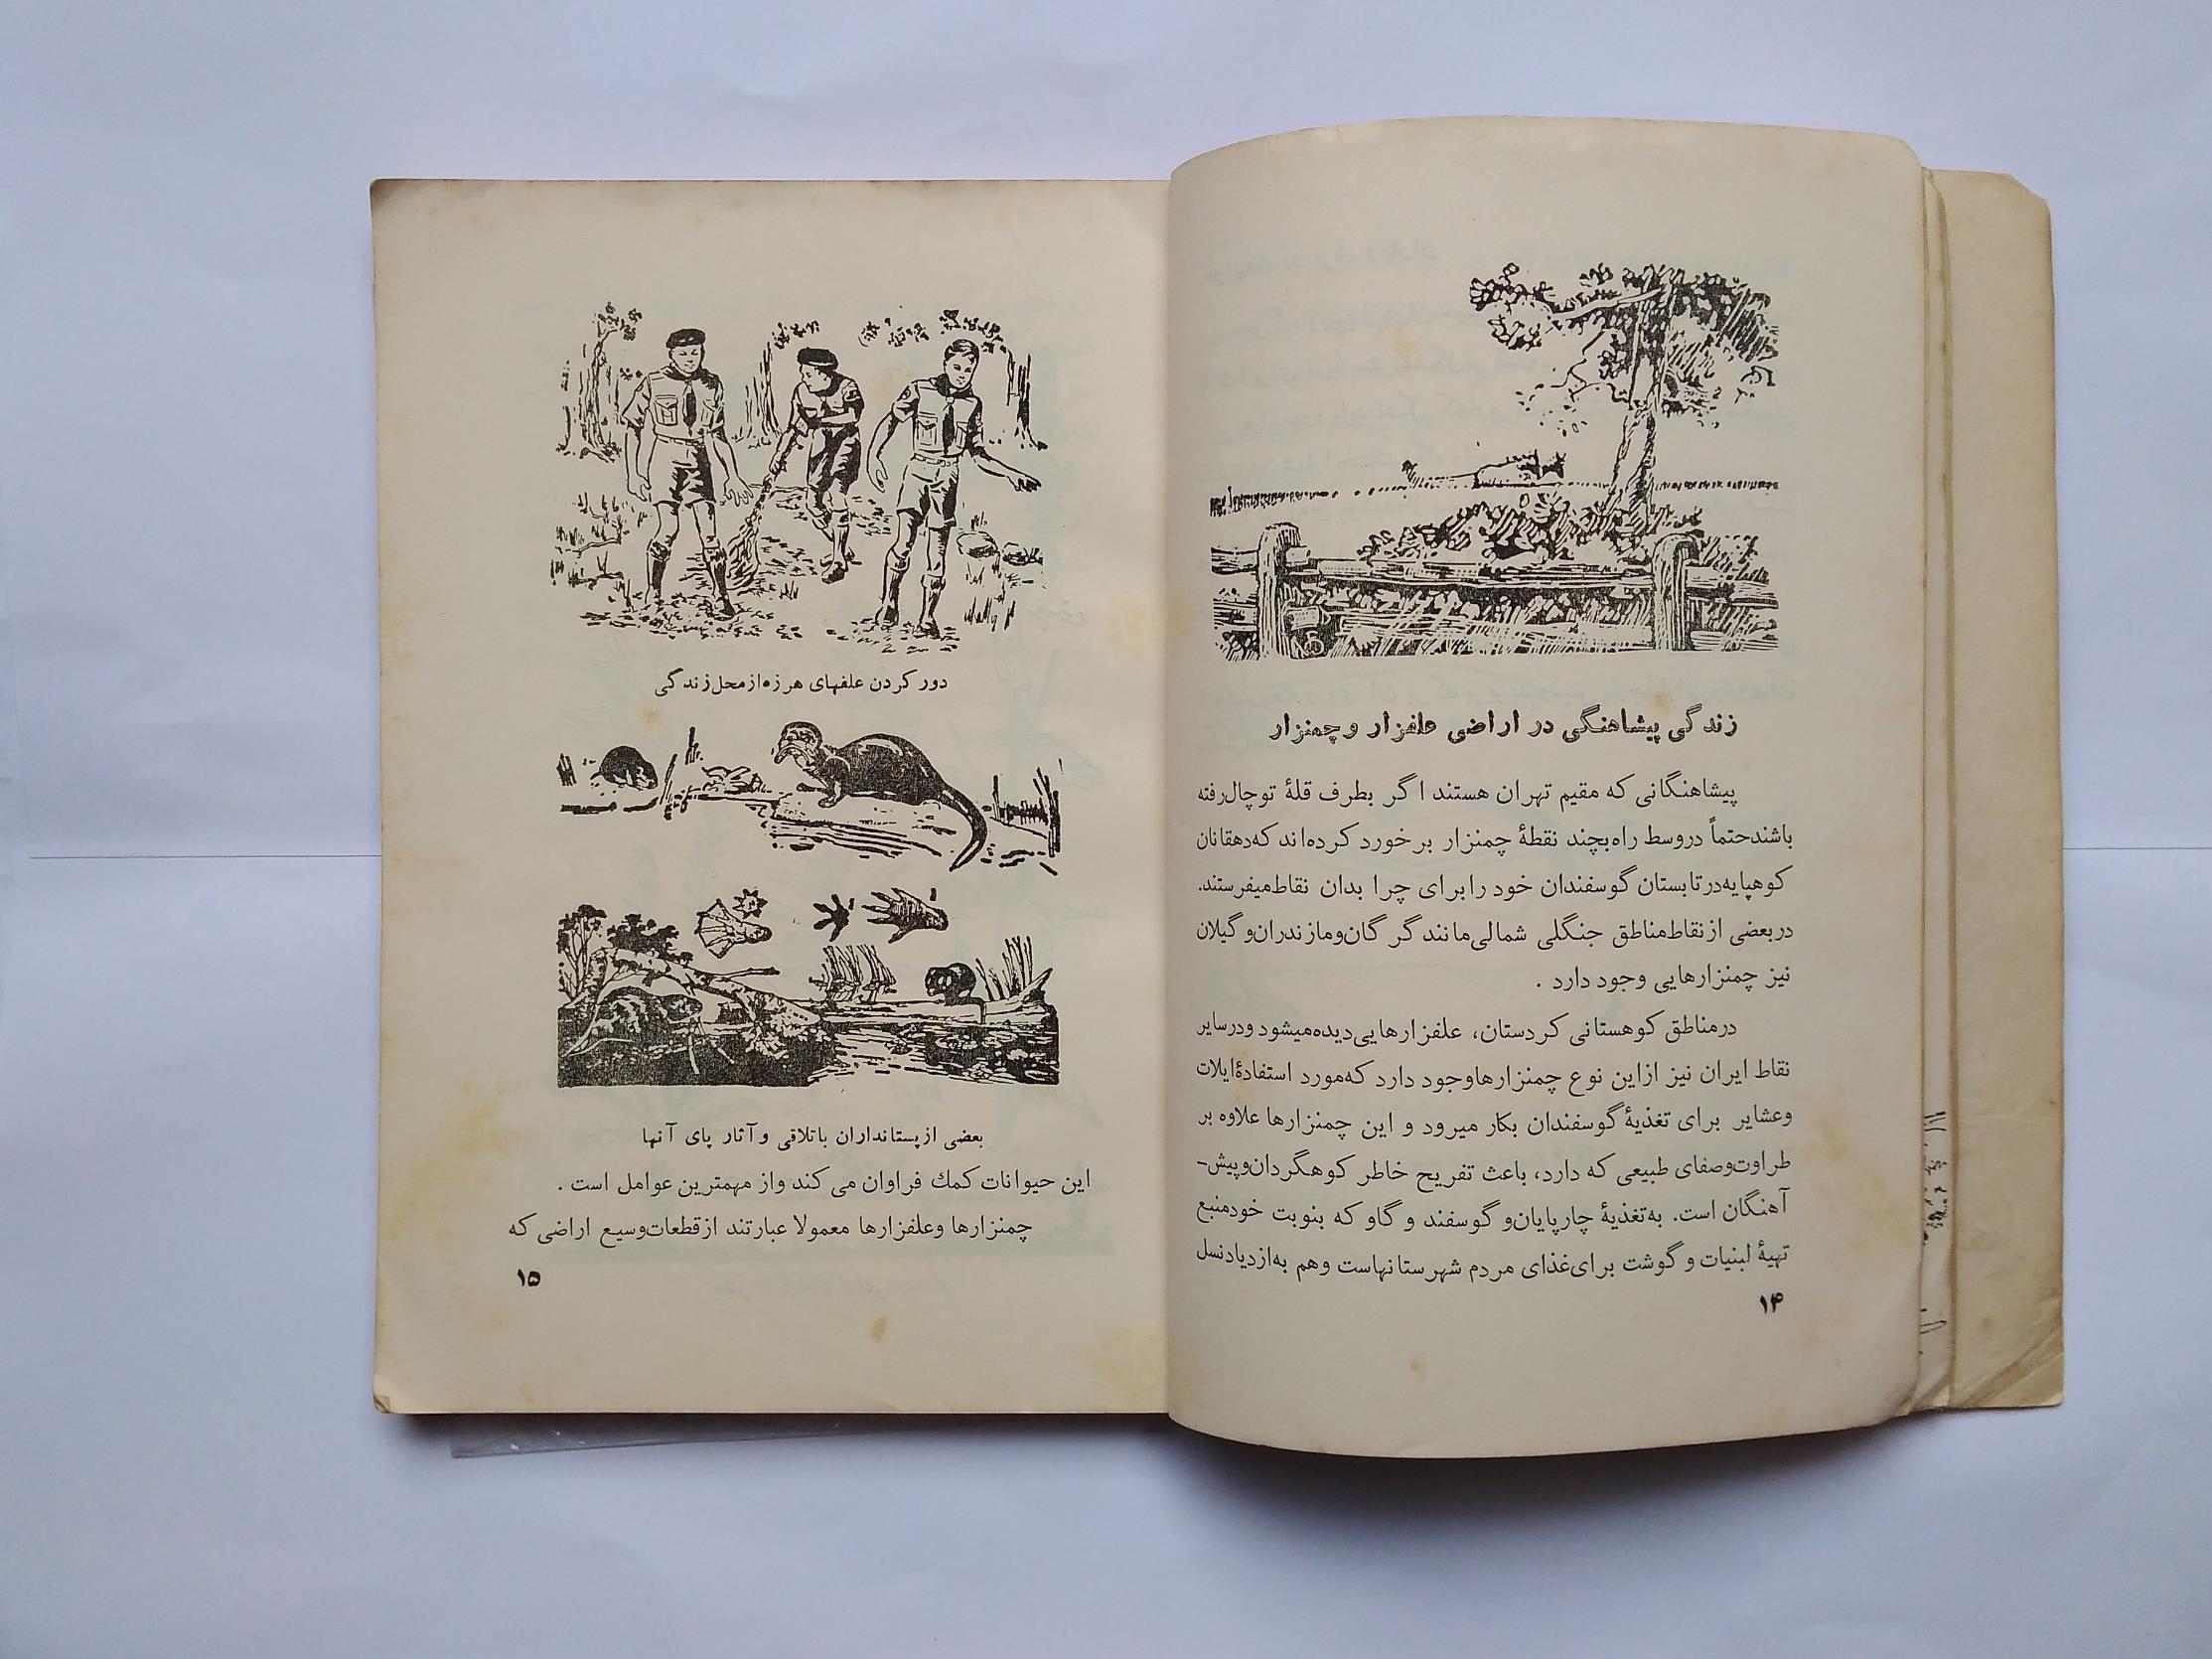 زندگی پیشاهنگی در اراضی علفزار و چمنزار
پیشاهنگانی که مقیم تهران هستند اگر بطرف قلهٔ توچال رفته
باشند حتماً در وسط راه بچند نقطهٔ چمنزار برخورد کرده‌اند که دهقانان
کوهپایه در تابستان گوسفندان خود را برای چرا بدان نقاط میفرستند.
در بعضی از نقاط مناطق جنگلی شمالی مانند گرگان و مازندران و گیلان
نیز چمنزارهایی وجود دارد .
در مناطق کوهستانی کردستان، علفزارهایی دیده میشود و در سایر
نقاط ایران نیز از این نوع چمنزارها وجود دارد که مورد استفادهٔ ایلات
و عشایر برای تغذیهٔ گوسفندان بکار میرود و این چمنزارها علاوه بر
طراوت و صفای طبیعی که دارد، باعث تفریح خاطر کوهگردان و پیش-
آهنگان است. به تغذیهٔ چارپایان و گوسفند و گاو که بنوبت خود منبع
تهیهٔ لبنیات و گوشت برای غذای مردم شهرستانهاست و هم به ازدیاد نسل
۱۴
دور کردن علفهای هرزه از محل زندگی
بعضی از پستانداران باتلاقی و آثار پای آنها
این حیوانات کمك فراوان می کند و از مهمترین عوامل است .
چمنزارها و علفزارها معمولا عبارتند از قطعات وسیع اراضی که
۱۵